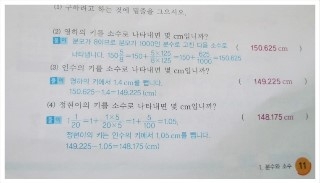 (1) 구하려고 하는 것에 밑줄을 그으시오.
(2) 영희의 키를 소수로 나타내면 몇 cm입니까?
풀이 분모가 8이므로 분모가 1000인 분수로 고친 다음 소수로 ( 150.625 cm )
나타냅니다. 150 5/8 = 150 + 5×125/8×125 = 150 + 625/1000 = 150.625
(3) 민수의 키를 소수로 나타내면 몇 cm입니까?
풀이 영희의 키에서 1.4 cm를 뺍니다. ( 149.225 cm )
150.625-1.4=149.225(cm)
(4) 정현이의 키를 소수로 나타내면 몇 cm입니까?
풀이 1 1/20 = 1 + 1×5/20×5 = 1 + 5/100 = 1.05, ( 148.175 cm )
정현이의 키는 민수의 키에서 1.05 cm를 뺍니다.
149.225-1.05=148.175(cm)
1. 분수와 소수 11